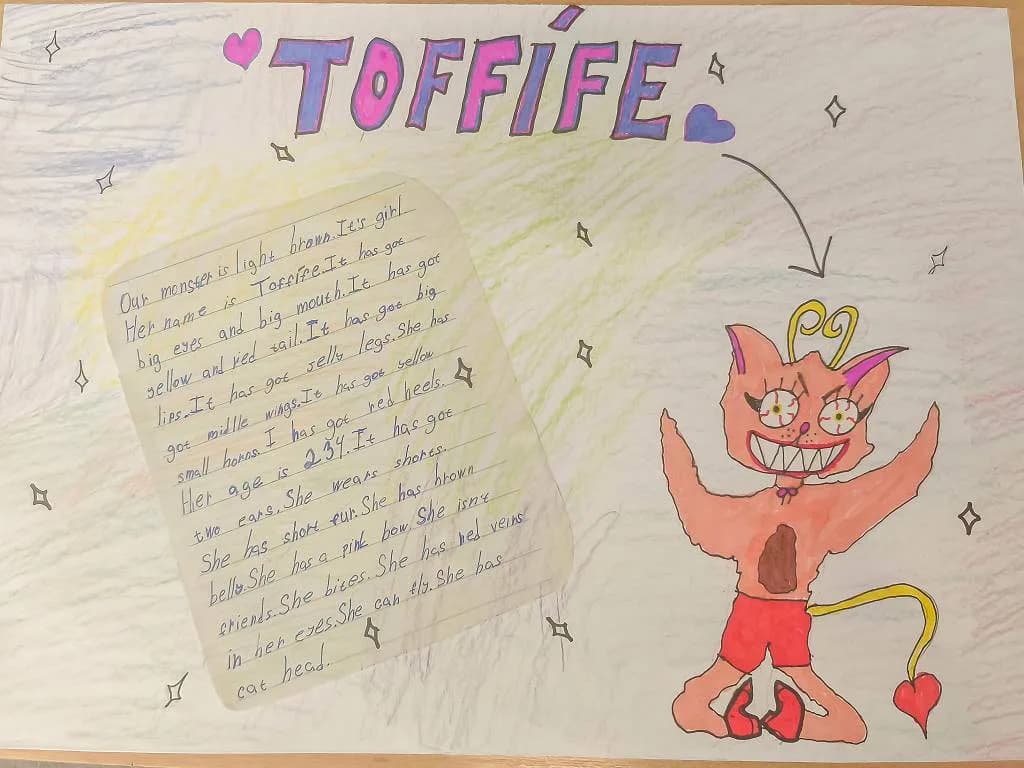 TOFFÍFE
Our monster is light brown. It's girl
Her name is Toffífe. It has got
big eyes and big mouth. It has got
yellow and red tail. It has got big
lips. It has got selly legs. She has
got midlle wings. It has got yellow
small horns. I has got red heels.
Her age is 234. It has got
two ears. She wears shorts.
She has short fur. She has brown
belly. She has a pink bow. She isn't
friends. She bites. She has red veins
in her eyes. She can fly. She has
cat head.